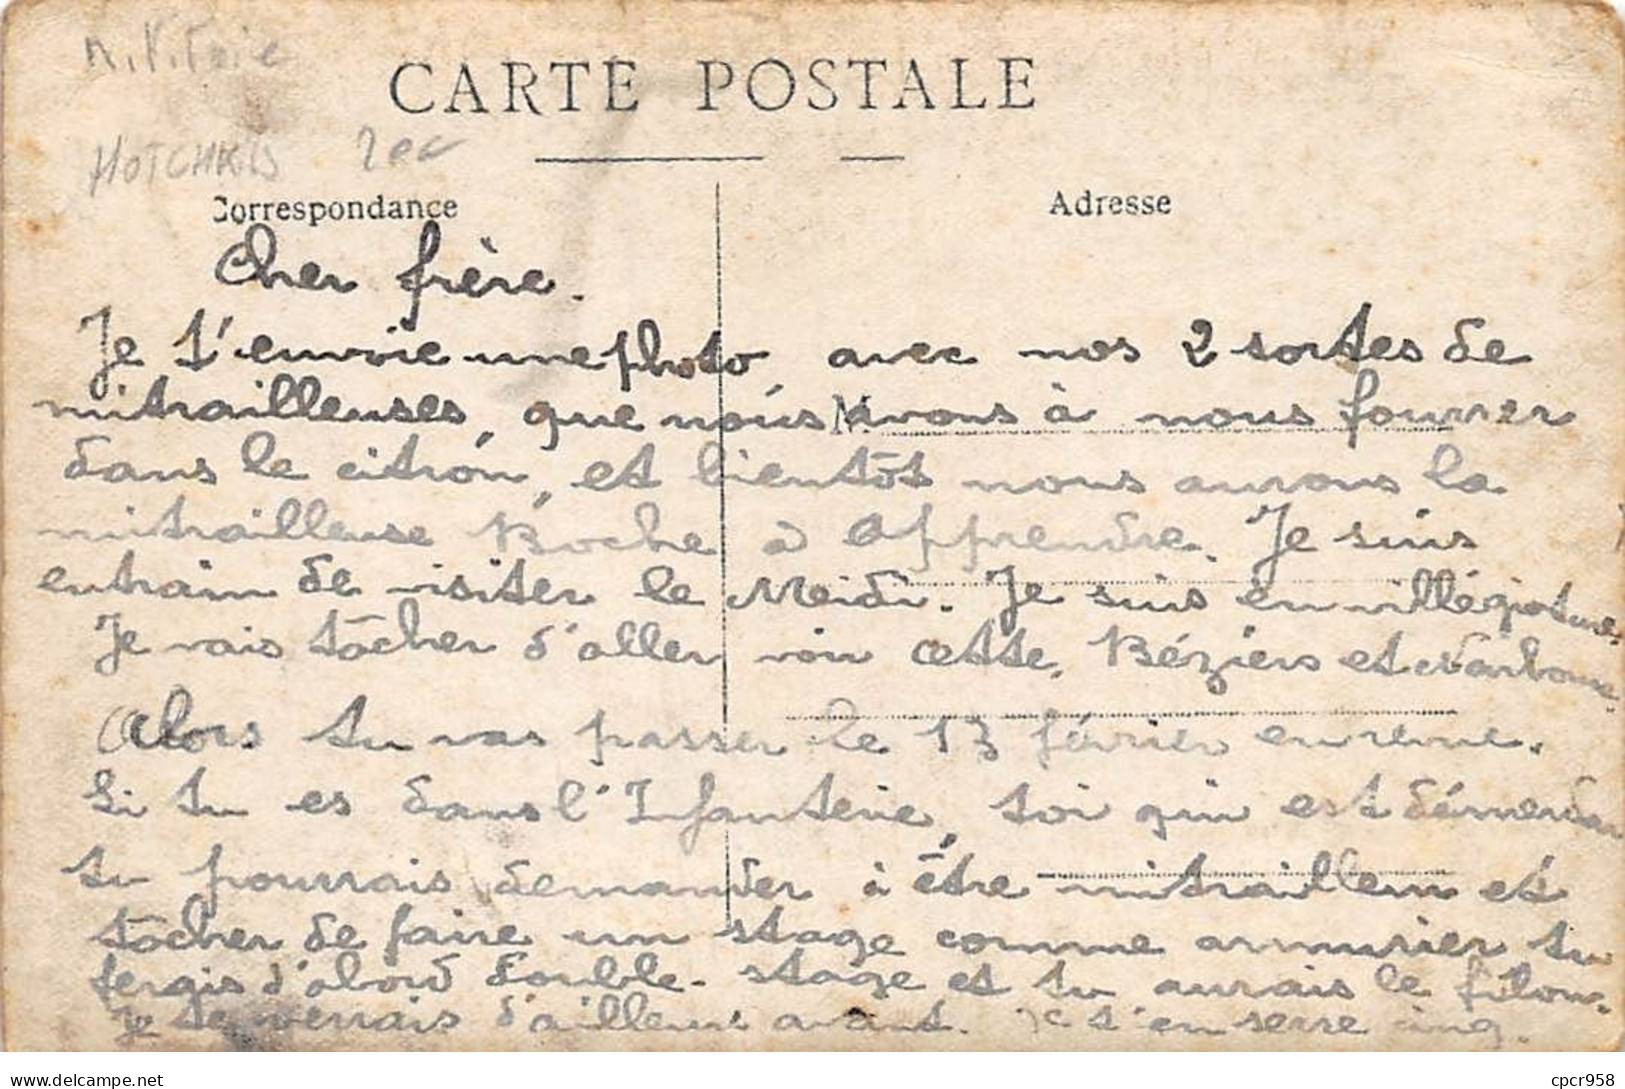 Militaire
CARTE POSTALE
HOTCHKIS
Correspondance
Adresse
Cher frère.
Je t'envoie une photo avec nos 2 sortes de
mitrailleuses, que nous avons à nous fourrer
M
dans le citron, et bientôt nous aurons la
mitrailleuse Boche à apprendre. Je suis
entrain de visiter le Meidi. Je suis en villégioture.
Je vais tâcher d'aller voir Cette, Béziers et Narbonne.
Alors tu vas passer le 13 février en revue.
Si tu es dans l'Infanterie, toi qui est démerdar
tu pourrais demander à être mitrailleur et
tâcher de faire un stage comme armurier tu
fergis d'abord double-stage et tu aurais le filon.
Je te verrais d'ailleurs avant. Je t'en serre cinq.
cpcr958